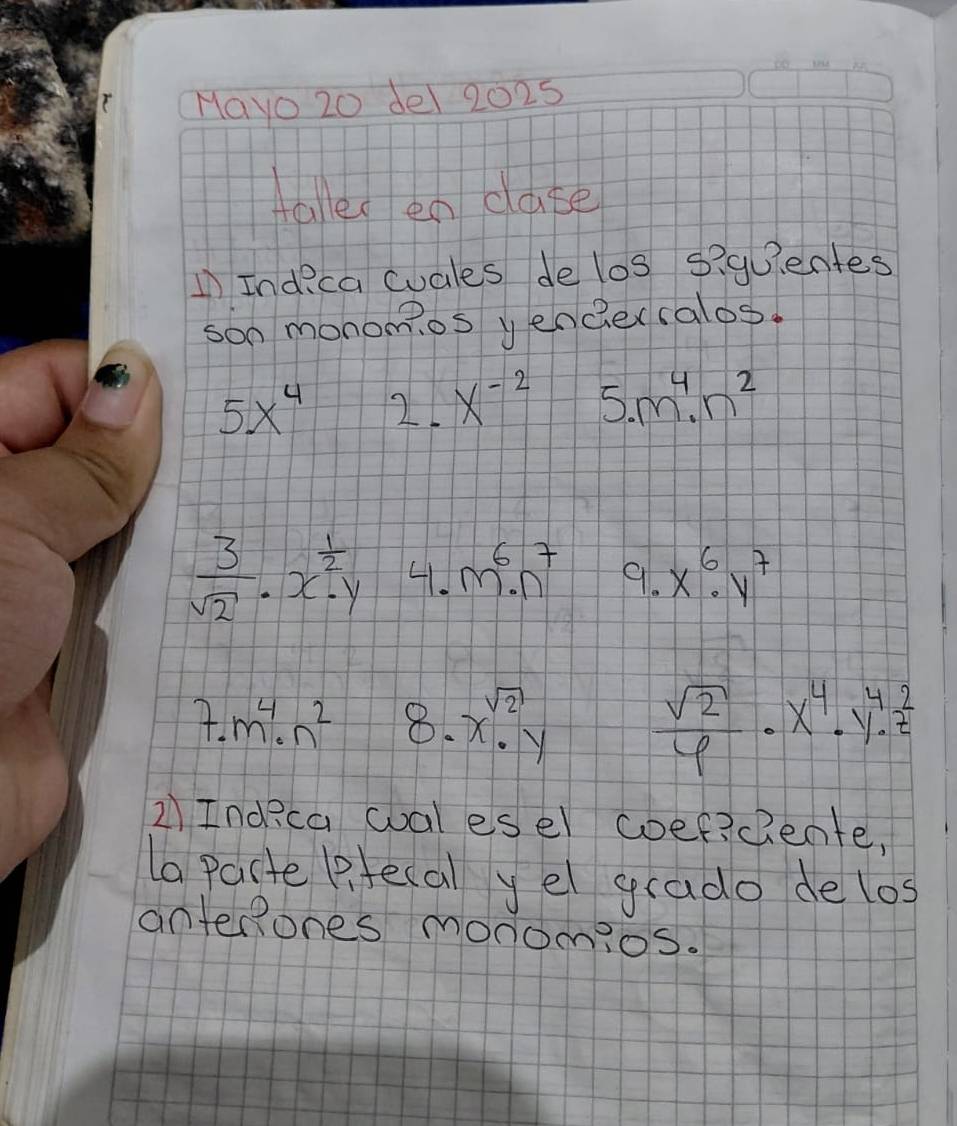 Mayo 20 del 2025
taller en clase
1) Indica cuales de los siguientes
son monomios y encierralos.
5.x⁴ 2.x⁻² 5.m⁴.n²
3/√2 . x^(1/2).y 4.m⁶.n⁷ 9.x⁶.y⁷
7.m⁴.n² 8.x^√2.y √2/4 . x⁴.y⁴.z²
2) Indica cual es el coeficiente,
la parte literal y el grado de los
anteriones monomios.